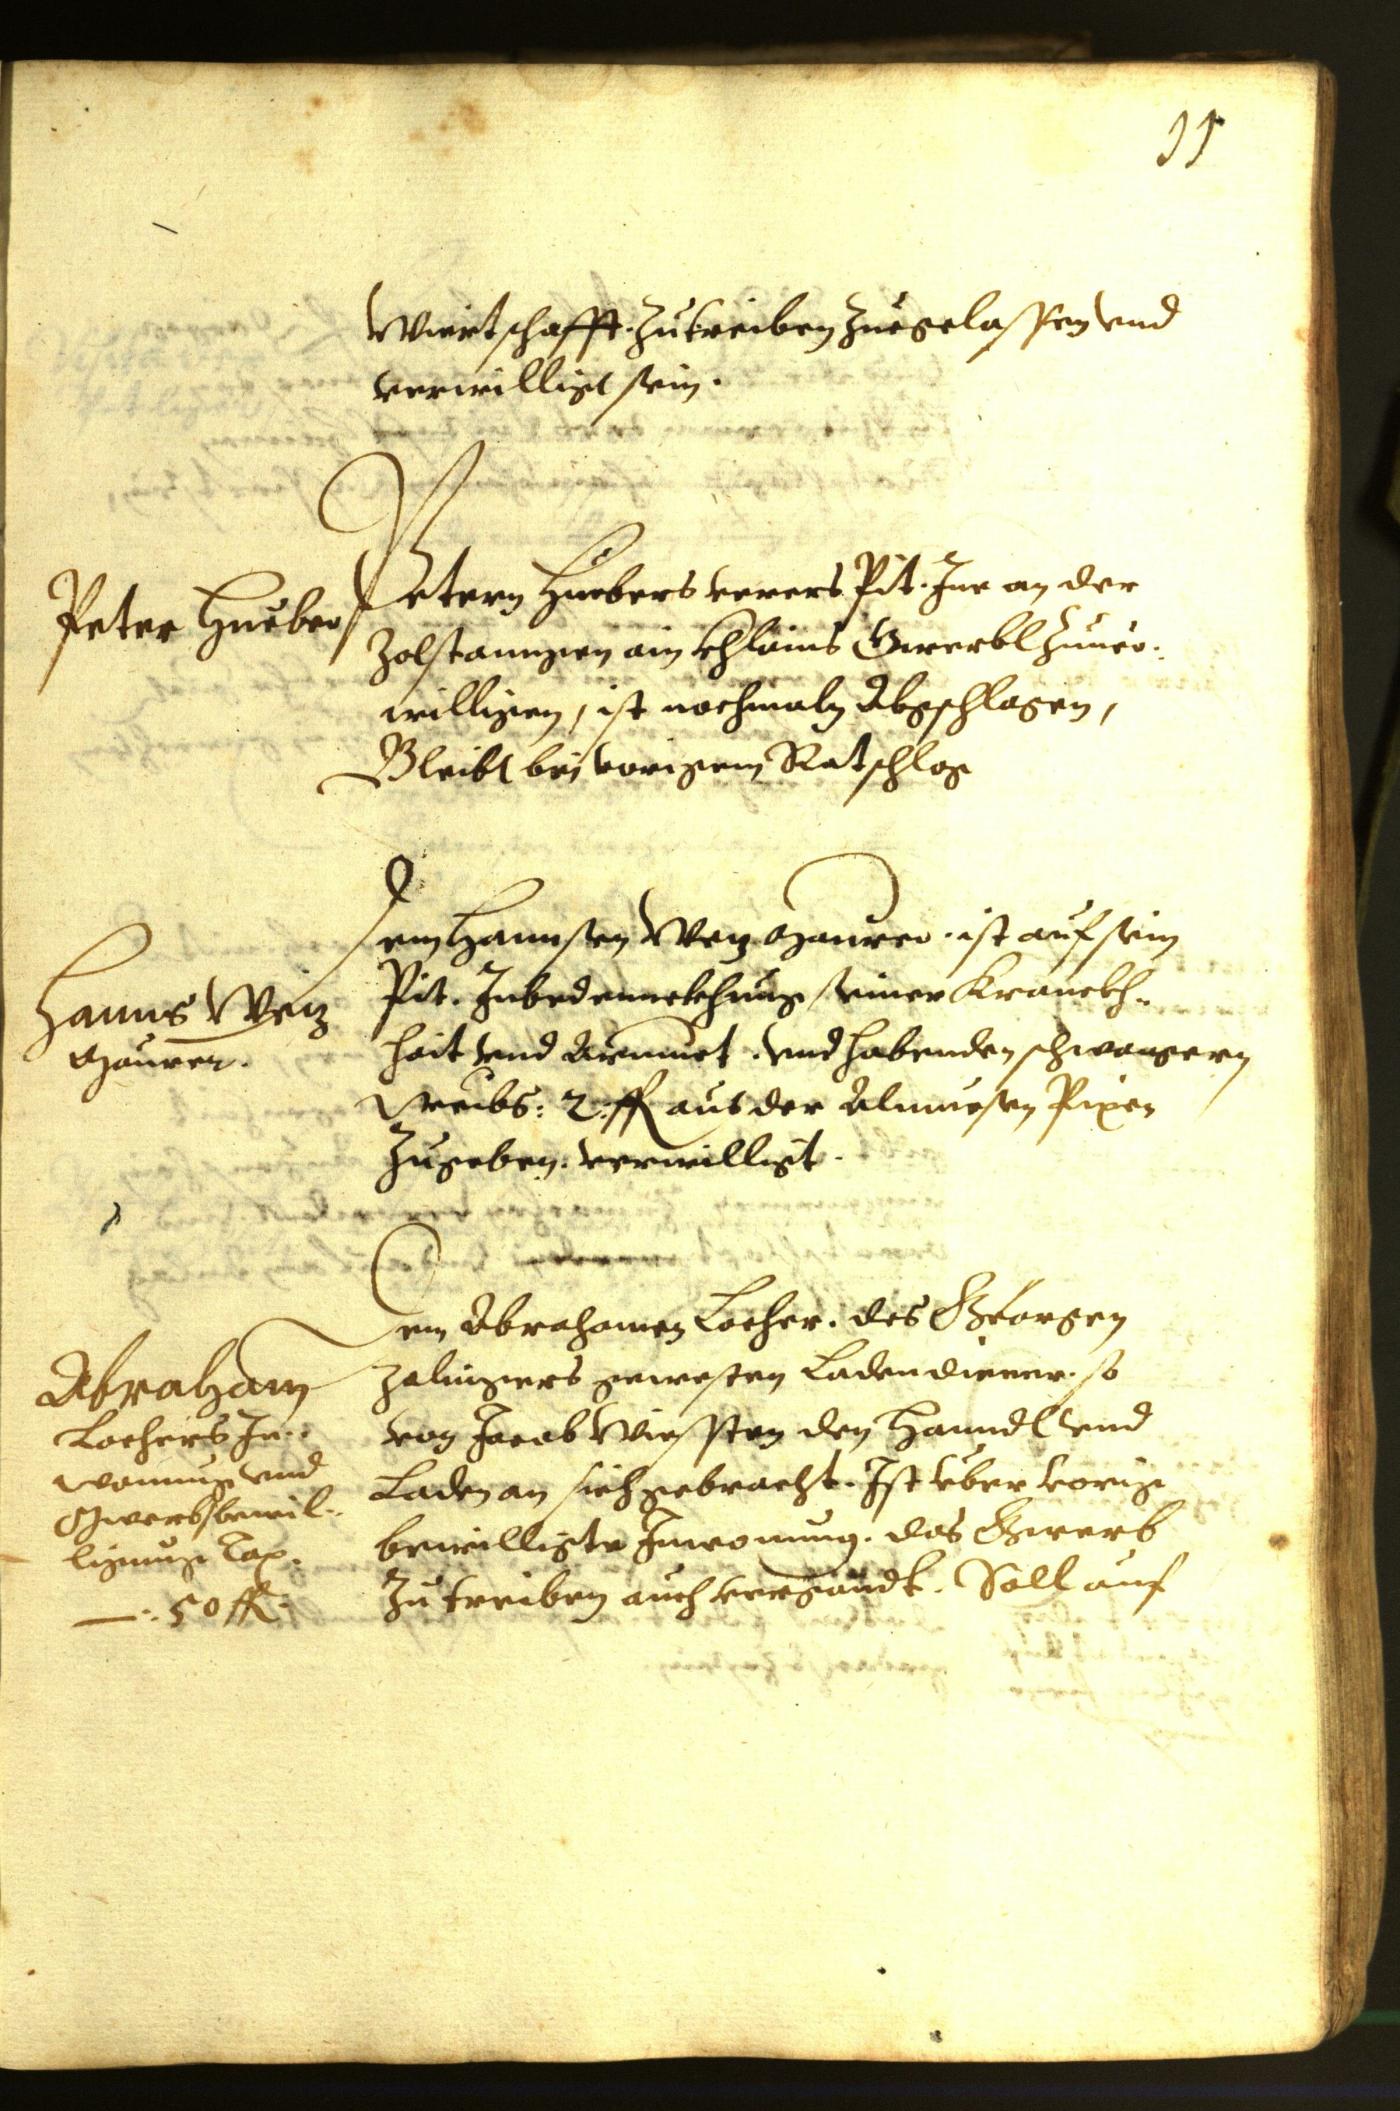 11
Wiertschafft zutreiben zuegelassen vnd
verwilligt sein.
Peter Hueber
Petern Huebers verers Pit. Ime an der
Zolstanngen ain khlains Gwerbl zuuer-
willigen, ist nochmaln Abgschlagen,
Bleibt bei vorigem Ratschlag
Hanns Weiz
Maurer.
Dem Hannsen Weiz Maurer. ist auf sein
Pit. In bedennckhung seiner Kranckh-
hait vnd Armuet. vnd habenden schwangern
Weibs: 2. fl aus der Almuesen Pixen
zugeben. verwilligt.
Abraham
Lochers In-
wonnung vnd
Gwerbsbewil-
ligung Tax.
50 fl.
Dem Abrahamen Locher. des Georgen
Zalingers gewesten Ladendiener. so
von Jacob Wiessten den Hanndl vnd
Laden an sich gebracht. Ist vber vorige
bewilligte Inwonung. das Gwerb
zutreiben auch vergundt. Soll auf